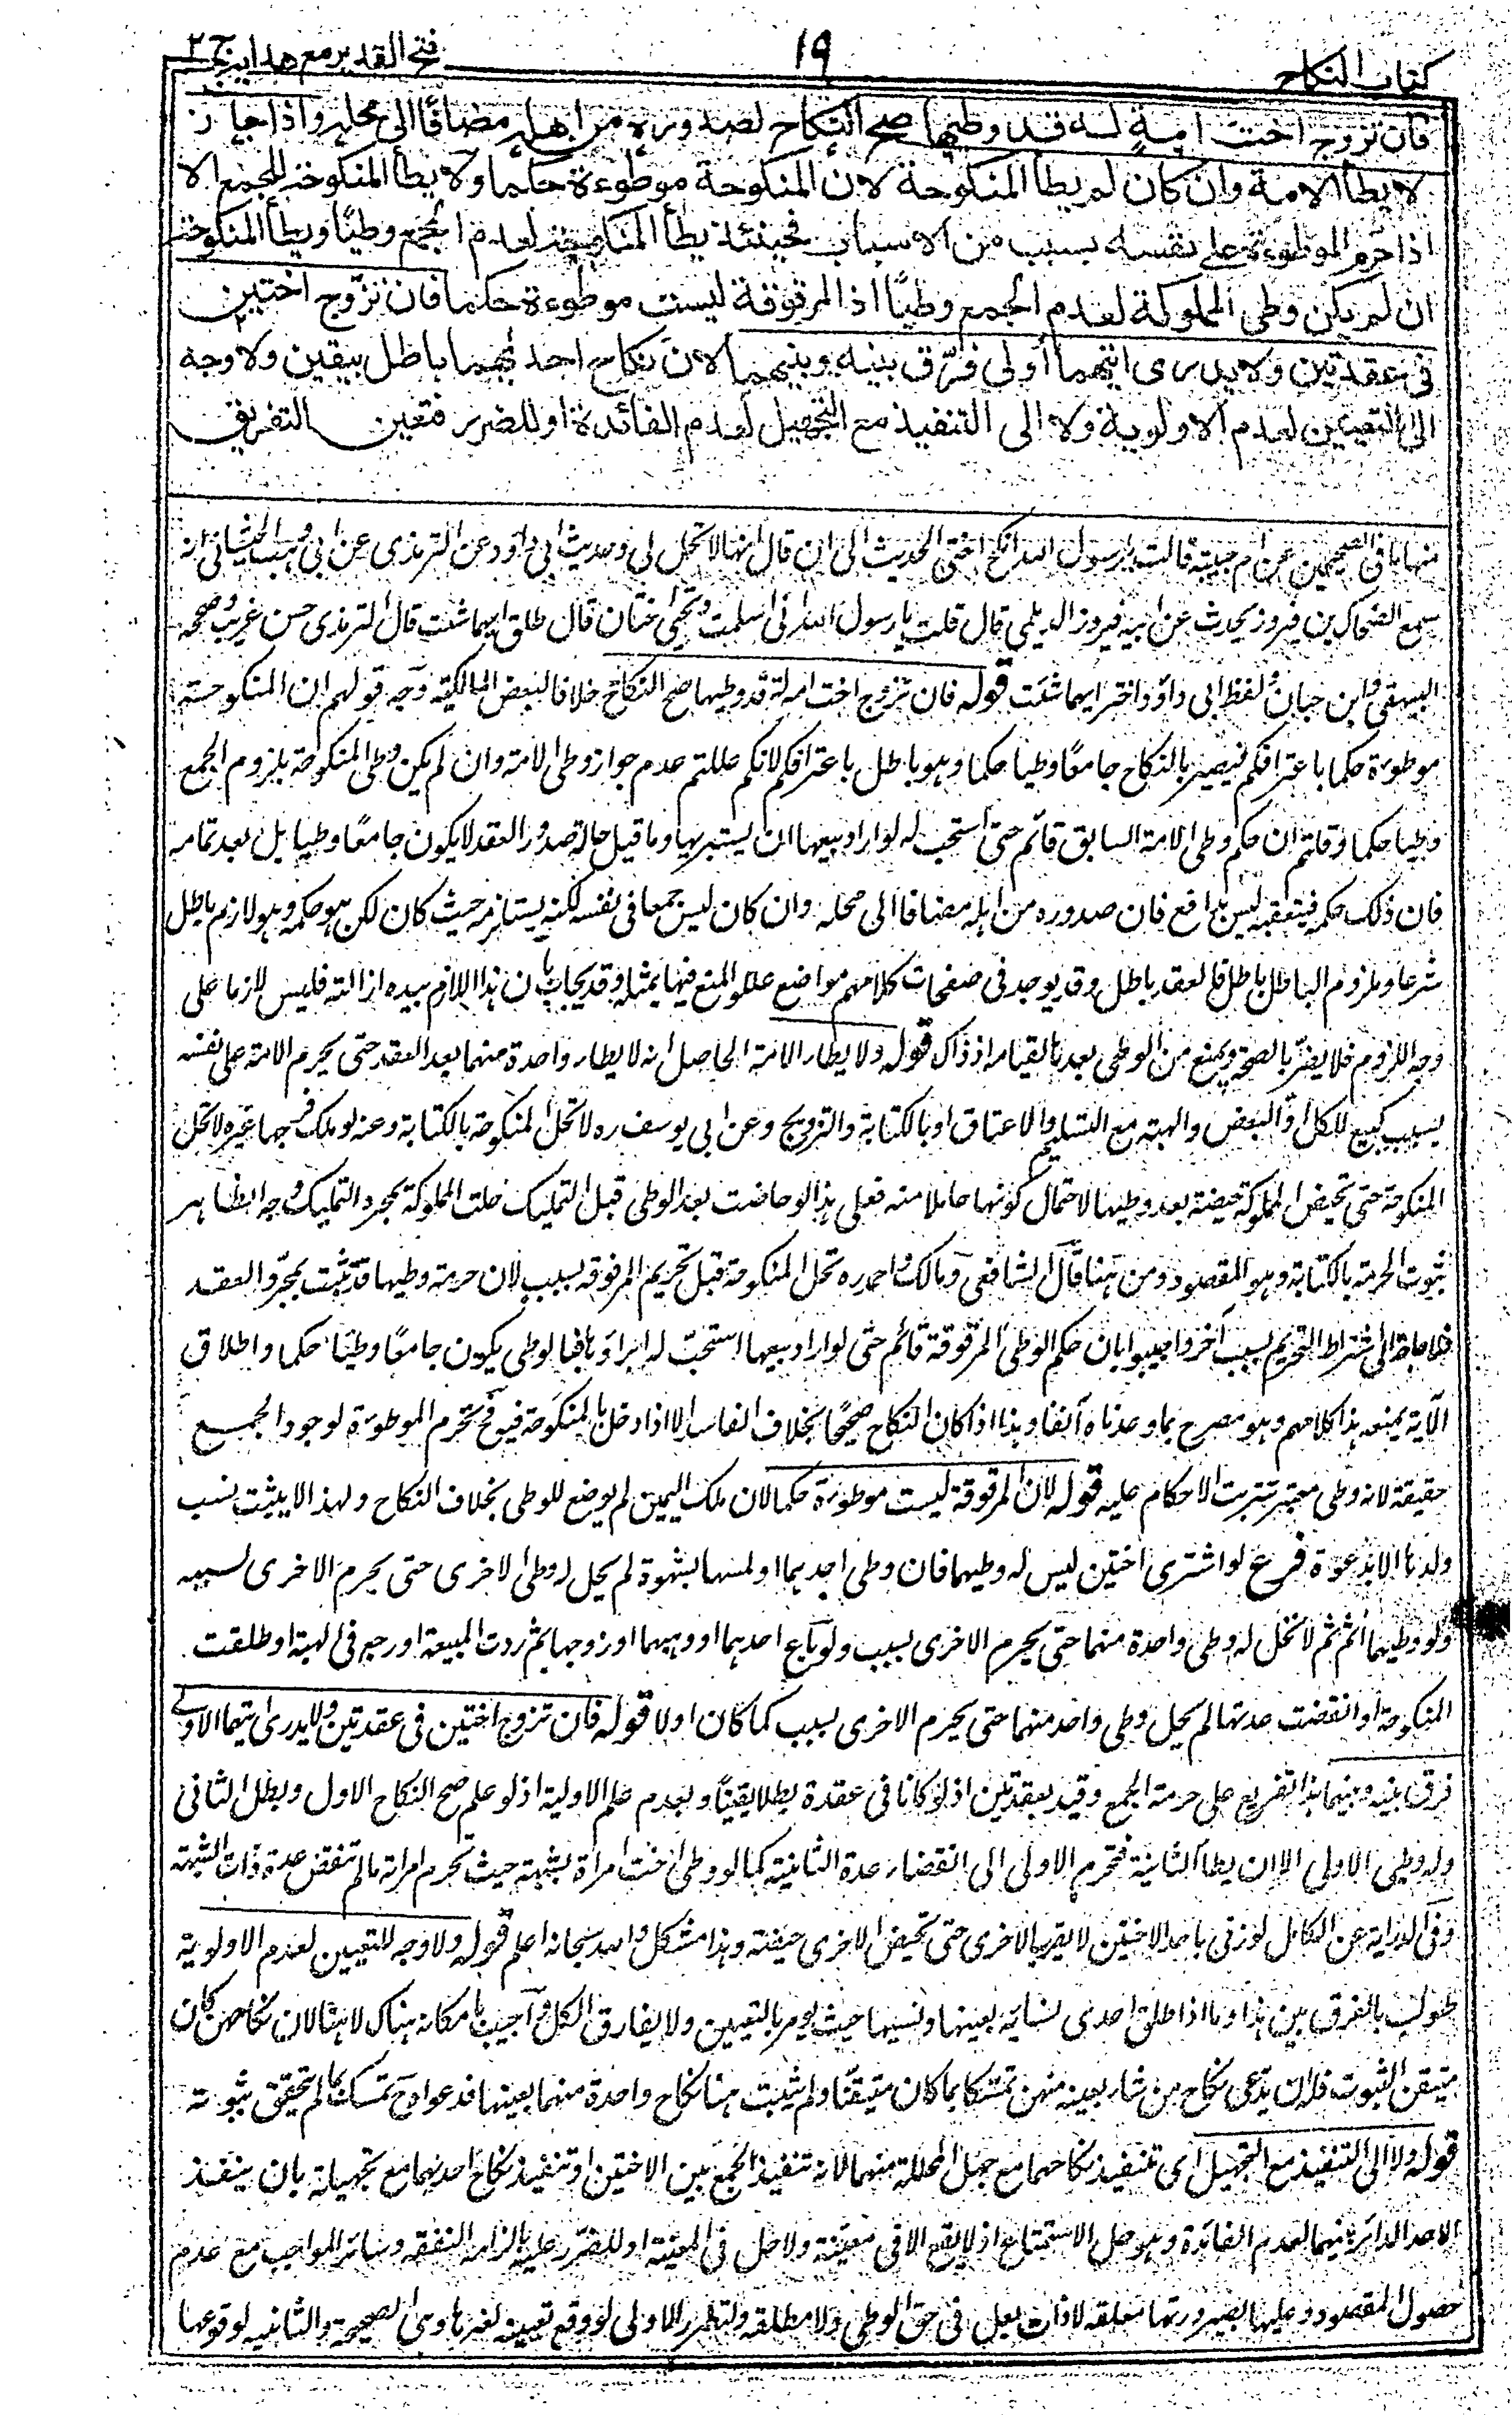 كتاب النكاح
١٩
فتح القدير مع هداية ج ٢
فان تزوج اخت امة له قد وطيها صح النكاح لصدوره من اهله مضافا الى محله واذا جاز
لا يطأ الامة وان كان لم يطأ المنكوحة لان المنكوحة موطوءة حكما ولا يطأ المنكوحة للجمع الا
اذا حرم الموطوءة على نفسه بسبب من الاسباب فحينئذ يطأ المنكوحة لعدم الجمع وطيًا ويطأ المنكوحة
ان لم يكن وطى المملوكة لعدم الجمع وطيًا اذ المرقوقة ليست موطوءة حكما فان تزوج اختين
فى عقدتين ولا يدرى ايتهما أولى فرّق بينه وبينهما لان نكاح احدٰيهما باطل بيقين ولا وجه
الى التعيين لعدم الاولوية ولا الى التنفيذ مع التجهيل لعدم الفائدة او للضرر فتعين التفريق
منها ما فى الصحيحين عن ام حبيبة قالت يا رسول الله انكح اختى الحديث الى ان قال انها لا تحل لى وحديث ابى داود عن الترمذى عن ابى وهب الجيشانى انه
سمع الضحاك بن فيروز يحدث عن ابيه فيروز الديلمى قال قلت يا رسول الله انى اسلمت وتحتى اختان قال طلق ايهما شئت قال الترمذى حسن غريب وصححه
البيهقى وابن حبان ولفظ ابى داؤد اختر ايهما شئت قوله فان تزوج اخت امة له قد وطيها صح النكاح خلافا لبعض المالكية وجه قولهم ان المنكوحة
موطوءة حكما باعترافكم فيصير بالنكاح جامعًا وطيا حكما وهو باطل باعترافكم لانكم عللتم عدم جواز وطى الامة وان لم يكن وطى المنكوحة بلزوم الجمع
وطيا حكما وقلتم ان حكم وطى الامة السابق قائم حتى استحب له لو اراد بيعها ان يستبريها وما قيل حالة صدور العقد لا يكون جامعًا وطيا بل بعد تمامه
فان ذلك حكمه فيتعقبه ليس بدافع فان صدوره من اهله مضافا الى محله وان كان ليس جمعا فى نفسه لكنه يستلزمه حيث كان لكن هو حكمه وهو لازم باطل
شرعا وملزوم الباطل باطل فالعقد باطل وقد يوجد فى صفحات كلامهم مواضع عللوا المنع فيها بمثله وقد يجاب بان هذا اللازم بيده ازالته فليس لازما على
وجه اللزوم فلا يضر بالصحة ويمنع من الوطى بعدها لقيامه اذ ذاك قوله ولا يطأ الامة الحاصل انه لا يطأ واحدة منهما بعد العقد حتى يحرم الامة على نفسه
بسبب كبيع للكل او البعض والهبة مع التسليم والاعتاق او بالكتابة والتزويج وعن ابى يوسف ره لا تحل المنكوحة بالكتابة وعنه لو ملك فرجها غيره لا تحل
المنكوحة حتى تحيض المملوكة حيضة بعد وطيها لاحتمال كونها حاملا منه فعلى هذا لو حاضت بعد الوطى قبل التمليك حلت المملوكة بمجرد التمليك وجه الظاهر
ثبوت الحرمة بالكتابة وهو المقصود ومن هنا قال الشافعى ومالك واحمد ره تحل المنكوحة قبل تحريم المرقوقة بسبب لان حرمة وطيها قد تثبت بمجرد العقد
فلا حاجة الى اشتراط التحريم بسبب آخر واجيبوا بان حكم الوطى المرقوقة قائم حتى لو اراد بيعها استحب له استبراؤها فبالوطى يكون جامعًا وطيًا حكما واطلاق
الآية يمنعه هذا كلامهم وهو مصرح بما وعدناه آنفا وهذا اذا كان النكاح صحيحًا بخلاف الفاسد الا اذا دخل بالمنكوحة فيه فح تحرم الموطوءة لوجود الجمع
حقيقة لانه وطى معتبر ترتبت الاحكام عليه قوله لان المرقوقة ليست موطوءة حكما لان ملك اليمين لم يوضع للوطى بخلاف النكاح ولهذا لا يثبت نسب
ولدها الا بدعوة فرع لو اشترى اختين ليس له وطيهما فان وطى احدٰيهما او لمسها بشهوة لم يحل له وطى الاخرى حتى يحرم الاخرى بسببه
ولو وطيهما اثم ثم لا تحل له وطى واحدة منهما حتى يحرم الاخرى بسبب ولو باع احدٰهما او وهبها او زوجها ثم ردت المبيعة او رجع فى الهبة او طلقت
المنكوحة او انقضت عدتها لم يحل وطى واحدة منهما حتى يحرم الاخرى بسبب كما كان اولا قوله فان تزوج اختين فى عقدتين ولا يدرى ايتهما الاولى
فرق بينه وبينهما هذا تفريع على حرمة الجمع وقيد بعقدتين اذ لو كانا فى عقدة بطلا يقينًا وبعدم علم الاولية اذ لو علم صح النكاح الاول وبطل الثانى
وله وطى الاولى الا ان يطأ الثانية فتحرم الاولى الى انقضاء عدة الثانية كما لو وطى اخت امرأة بشبهة حيث تحرم امرأته ما لم تنقض عدة ذات الشبهة
وفى الدراية عن الكامل لو زنى باحد الاختين لا يقرب الاخرى حتى تحيض الاخرى حيضة وهذا مشكل والله سبحانه اعلم قوله ولا وجه للتعيين لعدم الاولوية
طولب بالفرق بين هذا وما اذا طلق احدى نسائه بعينها ونسيها حيث يؤمر بالتعيين ولا يفارق الكل واجيب بامكانه هناك لا هنا لان نكاحهن كان
متيقن الثبوت فله ان يدعى نكاح من شاء بعينه منهن تمسكا بما كان متيقنًا ولم يثبت هنا نكاح واحدة منهما بعينها فدعواه ح تمسك بما لم يتحقق ثبوته
قوله ولا الى التنفيذ مع التجهيل اى تنفيذ نكاحهما مع جهل المحللة منهما لانه تنفيذ الجمع بين الاختين او تنفيذ نكاح احدٰيهما مع تجهيله بان ينفذ
الاحد الدائر بينهما لعدم الفائدة وهو حل الاستمتاع اذ لا يقع الا فى معينة ولا حل فى المعينة او للضرر عليه بالزامه النفقة وسائر المواجب مع عدم
حصول المقصود وعليها لصيرورتها معلقة لا ذات بعل فى حق الوطى ولا مطلقة ولتطرر الاولى لو وقع تعيينه لغيرها وهى الصحيحة والثانية لوقوعها